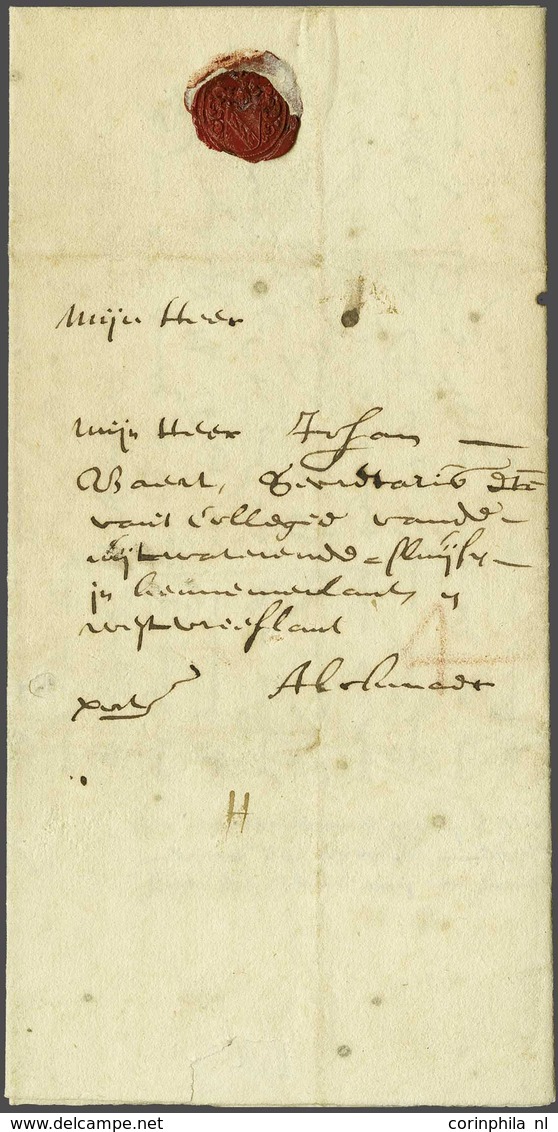 Mijn Heer
Mijn Heer Johan
Baert, Secretaris
vant Collegie vande
uijtwaterende sluijsen
in kennemerlant en
westvrieslant
Alckmaer
port
H
4
corinphila nl